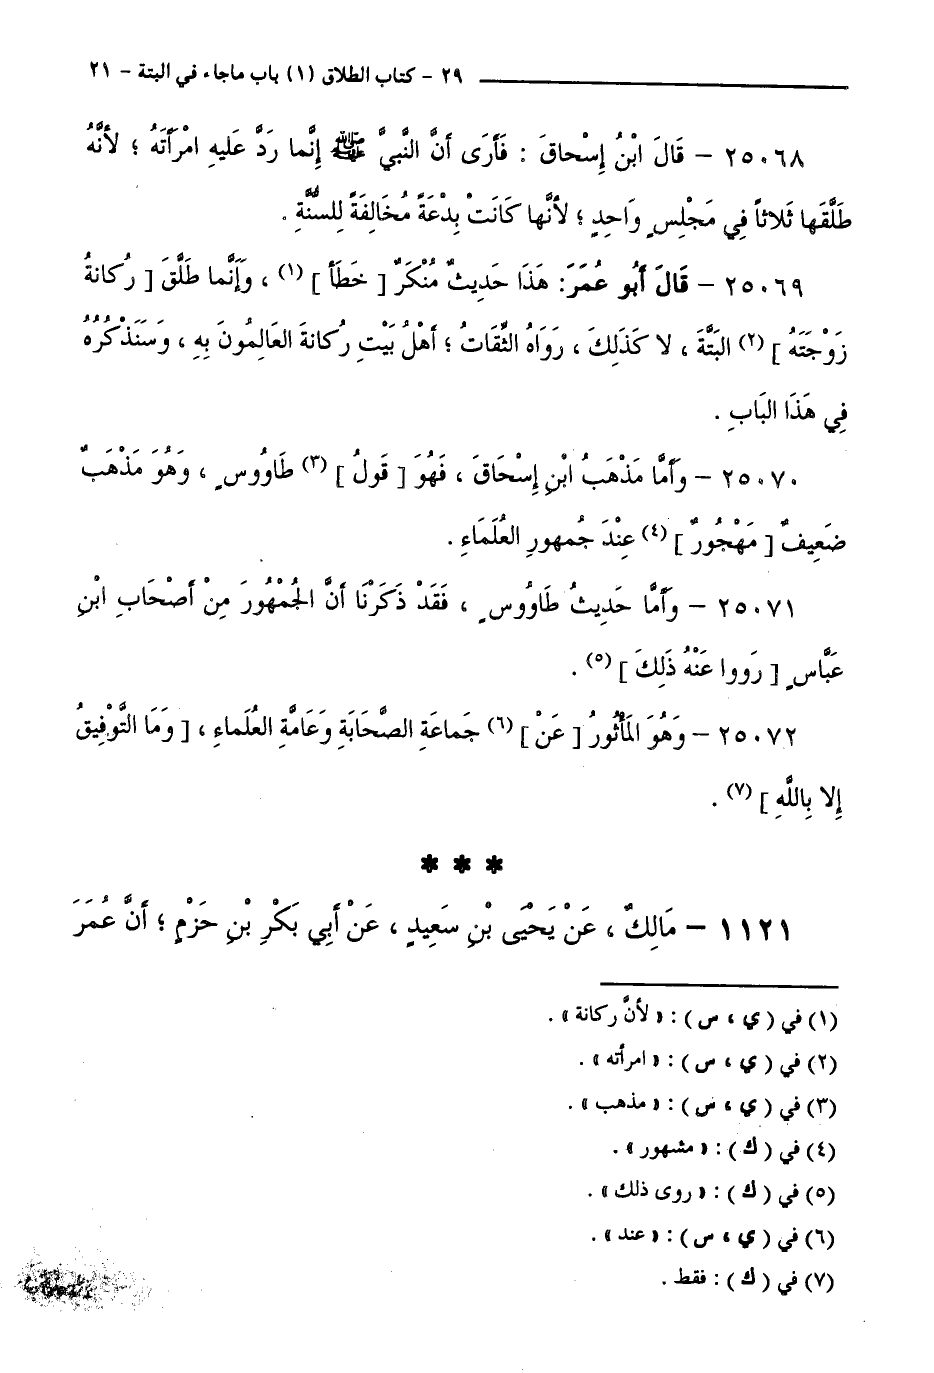 ٢٩ - كتاب الطلاق (١) باب ماجاء في البتة - ٢١
٢٥٠٦٨ - قَالَ ابْنُ إِسْحاقَ : فَأَرَى أَنَّ النَّبيَّ ﷺ إِنَّما رَدَّ عَليهِ امْرَأَتَهُ ؛ لأنَّهُ
طَلَّقَها ثَلاثاً فِي مَجْلِسٍ وَاحِدٍ ؛ لأنَّها كَانَتْ بِدْعَةً مُخَالِفَةً لِلسُّنَّةِ .
٢٥٠٦٩ - قَالَ أَبُو عُمَرَ: هَذَا حَدِيثٌ مُنْكَرٌ [ خَطَأ ] (١) ، وَإِنَّما طَلَّقَ [ رُكانَةُ
زَوْجَتَهُ ] (٢) البَتَّةَ ، لا كَذَلِكَ ، رَوَاهُ الثِّقَاتُ ؛ أهْلُ بَيْتِ رُكانَةَ العَالِمُونَ بِهِ ، وَسَنَذْكُرُهُ
فِي هَذَا البَابِ .
٢٥٠٧٠ - وَأَمَّا مَذْهَبُ ابْنِ إِسْحَاقَ ، فَهُوَ [ قَولُ ] (٣) طَاوُوسٍ ، وَهُوَ مَذْهَبٌ
ضَعِيفٌ [ مَهْجُورٌ ] (٤) عِنْدَ جُمهورِ العُلَمَاءِ .
٢٥٠٧١ - وَأَمَّا حَدِيثُ طَاوُوسٍ ، فَقَدْ ذَكَرْنَا أَنَّ الجُمْهُورَ مِنْ أَصْحَابِ ابْنِ
عَبَّاسٍ [ رَووا عَنْهُ ذَلِكَ ] (٥) .
٢٥٠٧٢ - وَهُوَ المَأْثُورُ [ عَنْ ] (٦) جَماعَةِ الصَّحَابَةِ وَعَامَّةِ العُلَماءِ ، [ وَمَا التَّوْفِيقُ
إِلا بِاللَّهِ ] (٧) .
* * *
١١٢١ - مَالِكٌ ، عَنْ يَحْيَى بْنِ سَعِيدٍ ، عَنْ أَبِي بَكْرِ بْنِ حَزْمٍ ؛ أَنَّ عُمَرَ
(١) في ( ي ، س ) : « لأنَّ ركانة » .
(٢) في ( ي ، س ) : « امرأته » .
(٣) في ( ي ، س ) : « مذهب » .
(٤) في ( ك ) : « مشهور » .
(٥) في ( ك ) : « روى ذلك » .
(٦) في ( ي ، س ) : « عند » .
(٧) في ( ك ) : فقط .